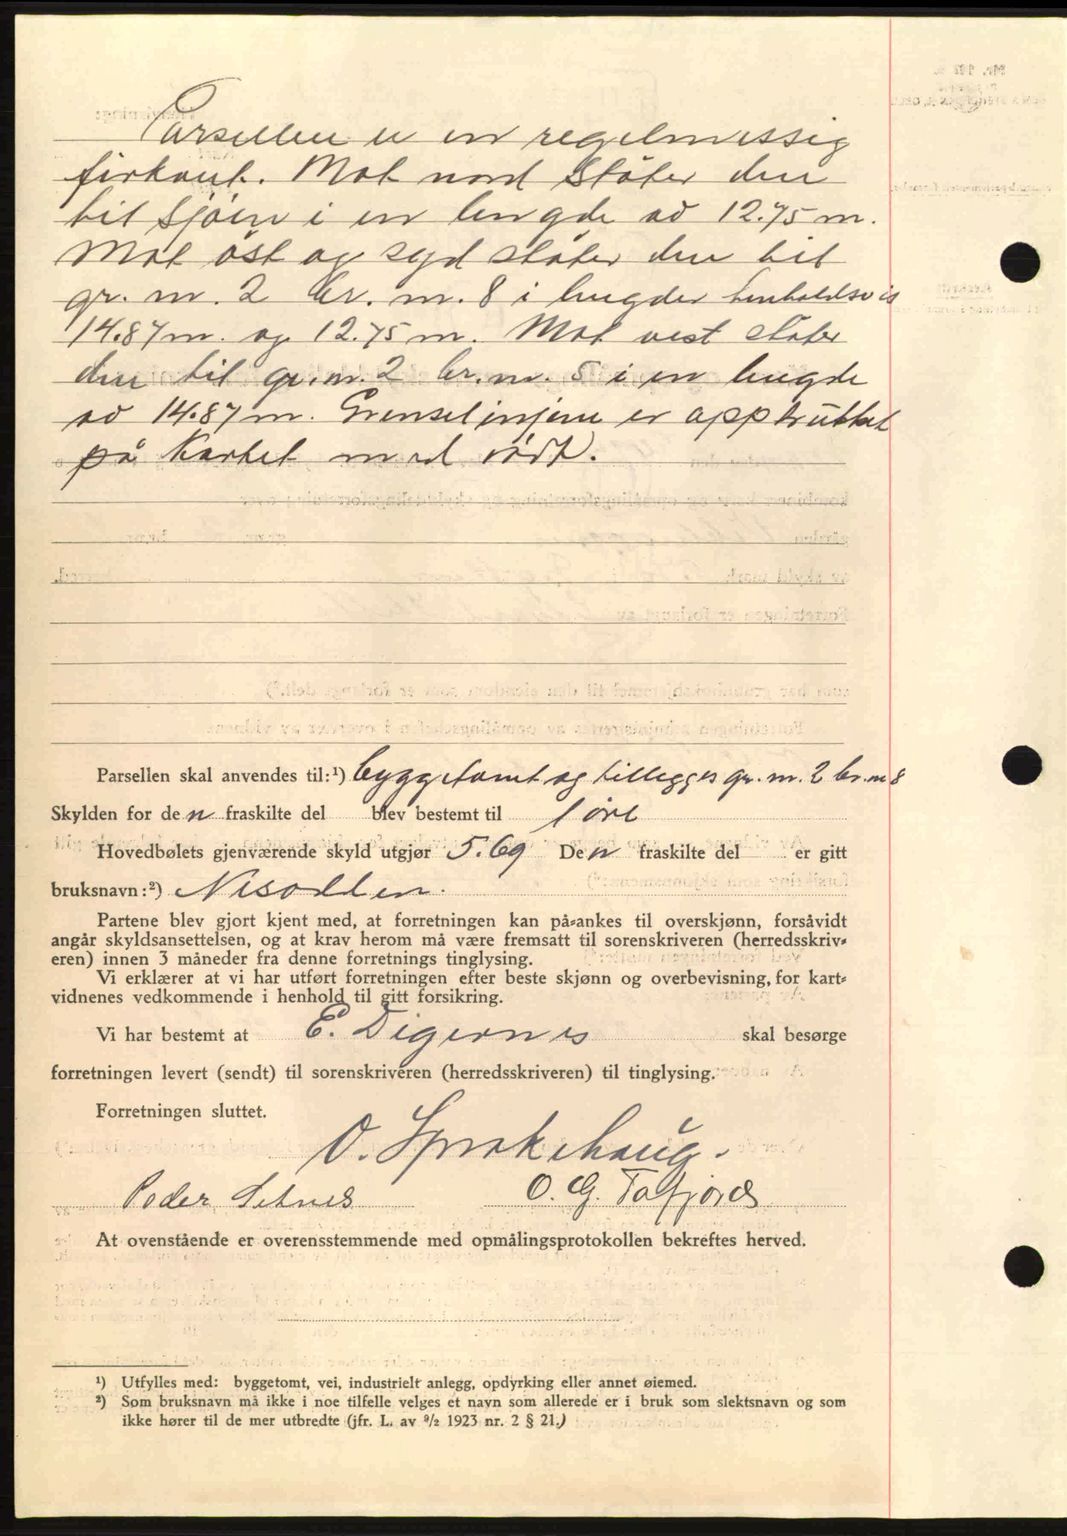 Parsellen er en regelmessig
firkant. Mot nord støter den
til sjøen i en lengde av 12.75 m.
Mot øst og syd støter den til
gr. nr. 2 br. nr. 8 i lengder henholdsvis
14.87 m. og 12.75 m. Mot vest støter
den til gr. nr. 2 br. nr. 5 i en lengde
av 14.87 m. Grenselinjene er opptrukket
på kartet med rødt.
Parsellen skal anvendes til:¹) byggetomt og tillegges gr. nr. 2 br. nr 8
Skylden for den fraskilte del blev bestemt til 1 øre
Hovedbølets gjenværende skyld utgjør 5.69 Den fraskilte del er gitt
bruksnavn:²)
Partene blev gjort kjent med, at forretningen kan på-ankes til overskjønn, forsåvidt
angår skyldsansettelsen, og at krav herom må være fremsatt til sorenskriveren (herredsskriv-
eren) innen 3 måneder fra denne forretnings tinglysing.
Vi erklærer at vi har utført forretningen efter beste skjønn og overbevisning, for kart-
vidnenes vedkommende i henhold til gitt forsikring.
Vi har bestemt at E. Digernes skal besørge
forretningen levert (sendt) til sorenskriveren (herredsskriveren) til tinglysing.
Forretningen sluttet.
O. Sprakehaug.
Peder Setnes O. G. Tafjord
At ovenstående er overensstemmende med opmålingsprotokollen bekreftes herved.
¹) Utfylles med: byggetomt, vei, industrielt anlegg, opdyrking eller annet øiemed.
²) Som bruksnavn må ikke i noe tilfelle velges et navn som allerede er i bruk som slektsnavn og som
ikke hører til de mer utbredte (jfr. L. av ⁹/₂ 1923 nr. 2 § 21.)